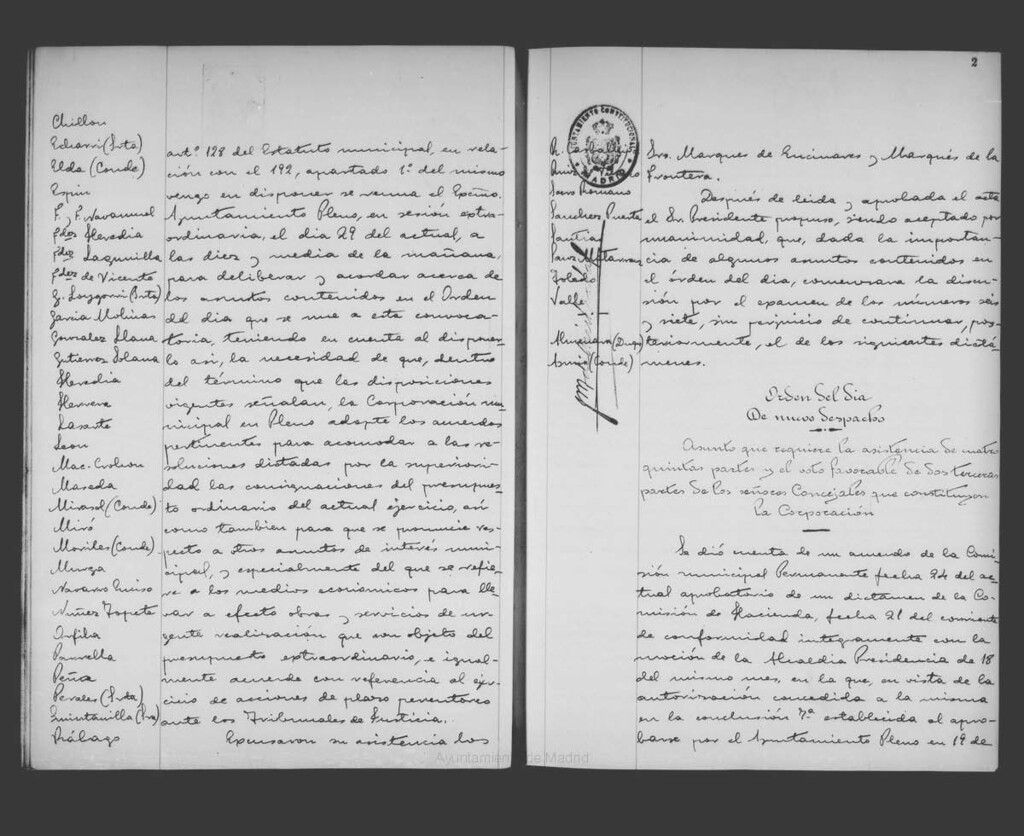 Chillon
Echarri (Srta)
Elda (Conde)
Espin
F. y F. Navamuel
Fdez Heredia
Fdez Lagunilla
Fdez de Vicente
G. Loygorri (Srta)
Garcia Molinas
Gonzalez Llana
Gutierrez Solana
Heredia
Herrera
Lasarte
Leon
Mac-Crohon
Maseda
Mirasol (Conde)
Miró
Moriles (Conde)
Murga
Navarro Enciso
Nuñez Topete
Orfila
Parrella
Peña
Perales (Srta)
Quintanilla (Sra)
Rálago
artº 128 del Estatuto municipal, en rela-
ción con el 192, apartado 1º del mismo
vengo en disponer se reuna el Excmo.
Ayuntamiento Pleno, en sesión extra-
ordinaria, el dia 29 del actual, a
las diez y media de la mañana,
para deliberar y acordar acerca de
los asuntos contenidos en el Orden
del dia que se une a esta convoca-
toria, teniendo en cuenta al disponer-
lo asi, la necesidad de que, dentro
del término que las disposiciones
vigentes señalan, la Corporación mu-
nicipal en Pleno adopte los acuerdos
pertinentes para acomodar a las re-
soluciones dictadas por la superiori-
dad las consignaciones del presupues-
to ordinario del actual ejercicio, asi
como tambien para que se pronuncie res-
pecto a otros asuntos de interés muni-
cipal, y especialmente del que se refie-
re a los medios económicos para lle-
var a efecto obras y servicios de ur-
gente realización que son objeto del
presupuesto extraordinario, e igual-
mente acuerde con referencia al ejer-
cicio de acciones de plazo perentorio
ante los Tribunales de Justicia.
Excusaron su asistencia los
2
AYUNTAMIENTO CONSTITUCIONAL
MADRID
R. Carballeira
Saro Romano
Sanchez Puerta
Toledo
Valle
Almenara (Duque)
(Conde)
Sres. Marques de Encinares y Marqués de la
Frontera.
Después de leida y aprobada el acta
el Sr. Presidente propuso, siendo aceptado por
unanimidad, que, dada la importan-
cia de algunos asuntos contenidos en
el órden del dia, comenzara la discu-
sión por el examen de los números seis
y siete, sin perjuicio de continuar, pos-
teriormente, el de los siguientes dictá-
menes.
Orden del dia
De nuevo despacho
Asunto que requiere la asistencia de cuatro
quintas partes y el voto favorable de dos terceras
partes de los señores Concejales que constituyen
la Corporación
Se dió cuenta de un acuerdo de la Comi-
sión municipal Permanente fecha 24 del ac-
tual aprobatorio de un dictamen de la Co-
misión de Hacienda, fecha 21 del corriente
de conformidad integramente con la
moción de la Alcaldia Presidencia de 18
del mismo mes, en la que, en vista de la
autorización concedida a la misma
en la conclusión 7ª establecida al apro-
barse por el Ayuntamiento Pleno en 19 de
Ayuntamiento de Madrid